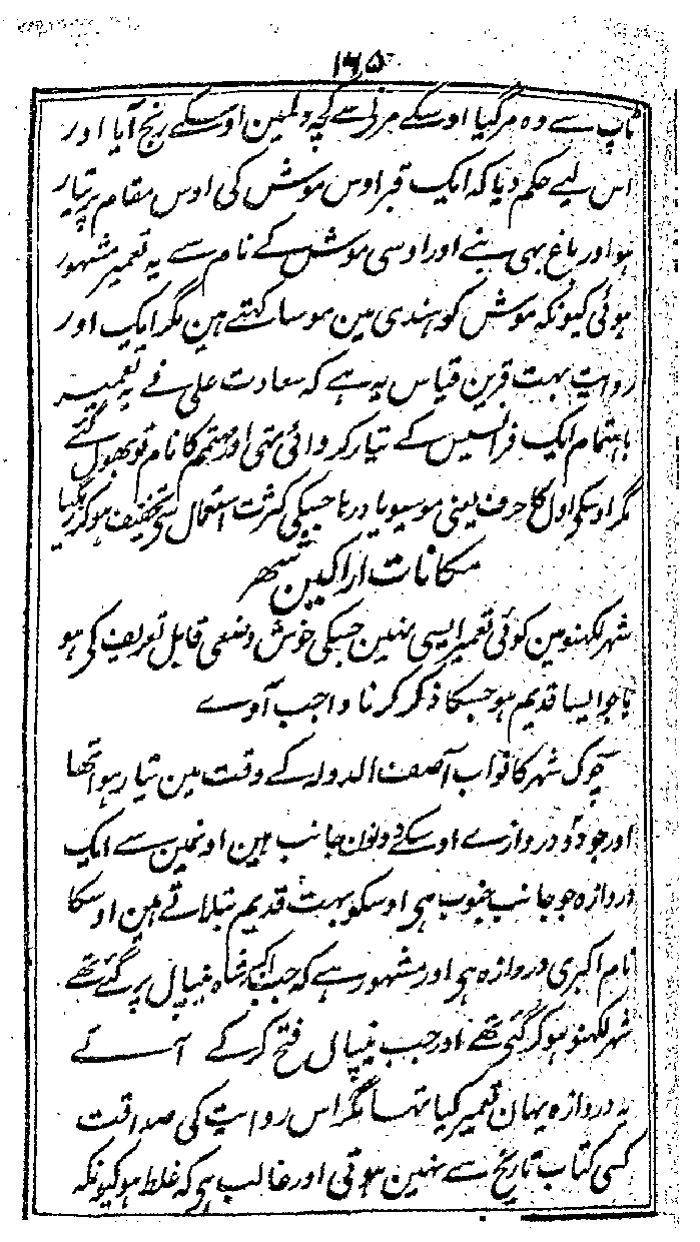 ۱۶۵
ٹاپ سے وہ مرگیا اوسکے مرنی سے کچہ دلمین اوسکے رنج آیا اور
اس لیے حکم دیا کہ ایک قبر اوس موش کی اوس مقام پر تیار
ہو اور باغ بہی بنے اور اوسی موش کے نام سے یہ تعمیر مشہور
ہوئی کیونکہ موش کو ہندی مین موسا کہتے ہین مگر ایک اور
روایت بہت قرین قیاس یہ ہے کہ سعادت علی نے یہ تعمیر
باہتمام ایک فرانسیس کے تیار کروائی تہی اور مہتمم کا نام تو بھول گئے
مگر اوسکی اول کا حرف یعنی موسیو یاد رہا جسکی کثرت استعمال سی تخفیف ہوکر رہگیا
مکانات اراکین شہر
شہر لکہنو مین کوئی تعمیر ایسی نہین جسکی خوش وضعی قابل تعریف کی ہو
یا جو ایسا قدیم ہو جسکا ذکر کرنا واجب آوے
چوک شہر کا نواب آصف الدولہ کے وقت مین تیار ہوا تھا
اور جو دو دروازے اوسکے دونون جانب ہین اونمین سے ایک
دروازہ جو جانب جنوب ہی اوسکو بہت قدیم بتلاتے ہین اوسکا
نام اکبری دروازہ ہی اور مشہور ہے کہ جب اکبر شاہ نیپال پر گئے تھے
شہر لکہنو ہوکر گئی تھے اور جب نیپال فتح کرکے آئے
یہ دروازہ یہان تعمیر کیا تہا مگر اس روایت کی صداقت
کسی کتاب تاریخ سے نہین ہوتی اور غالب ہی کہ غلط ہو کیونکہ